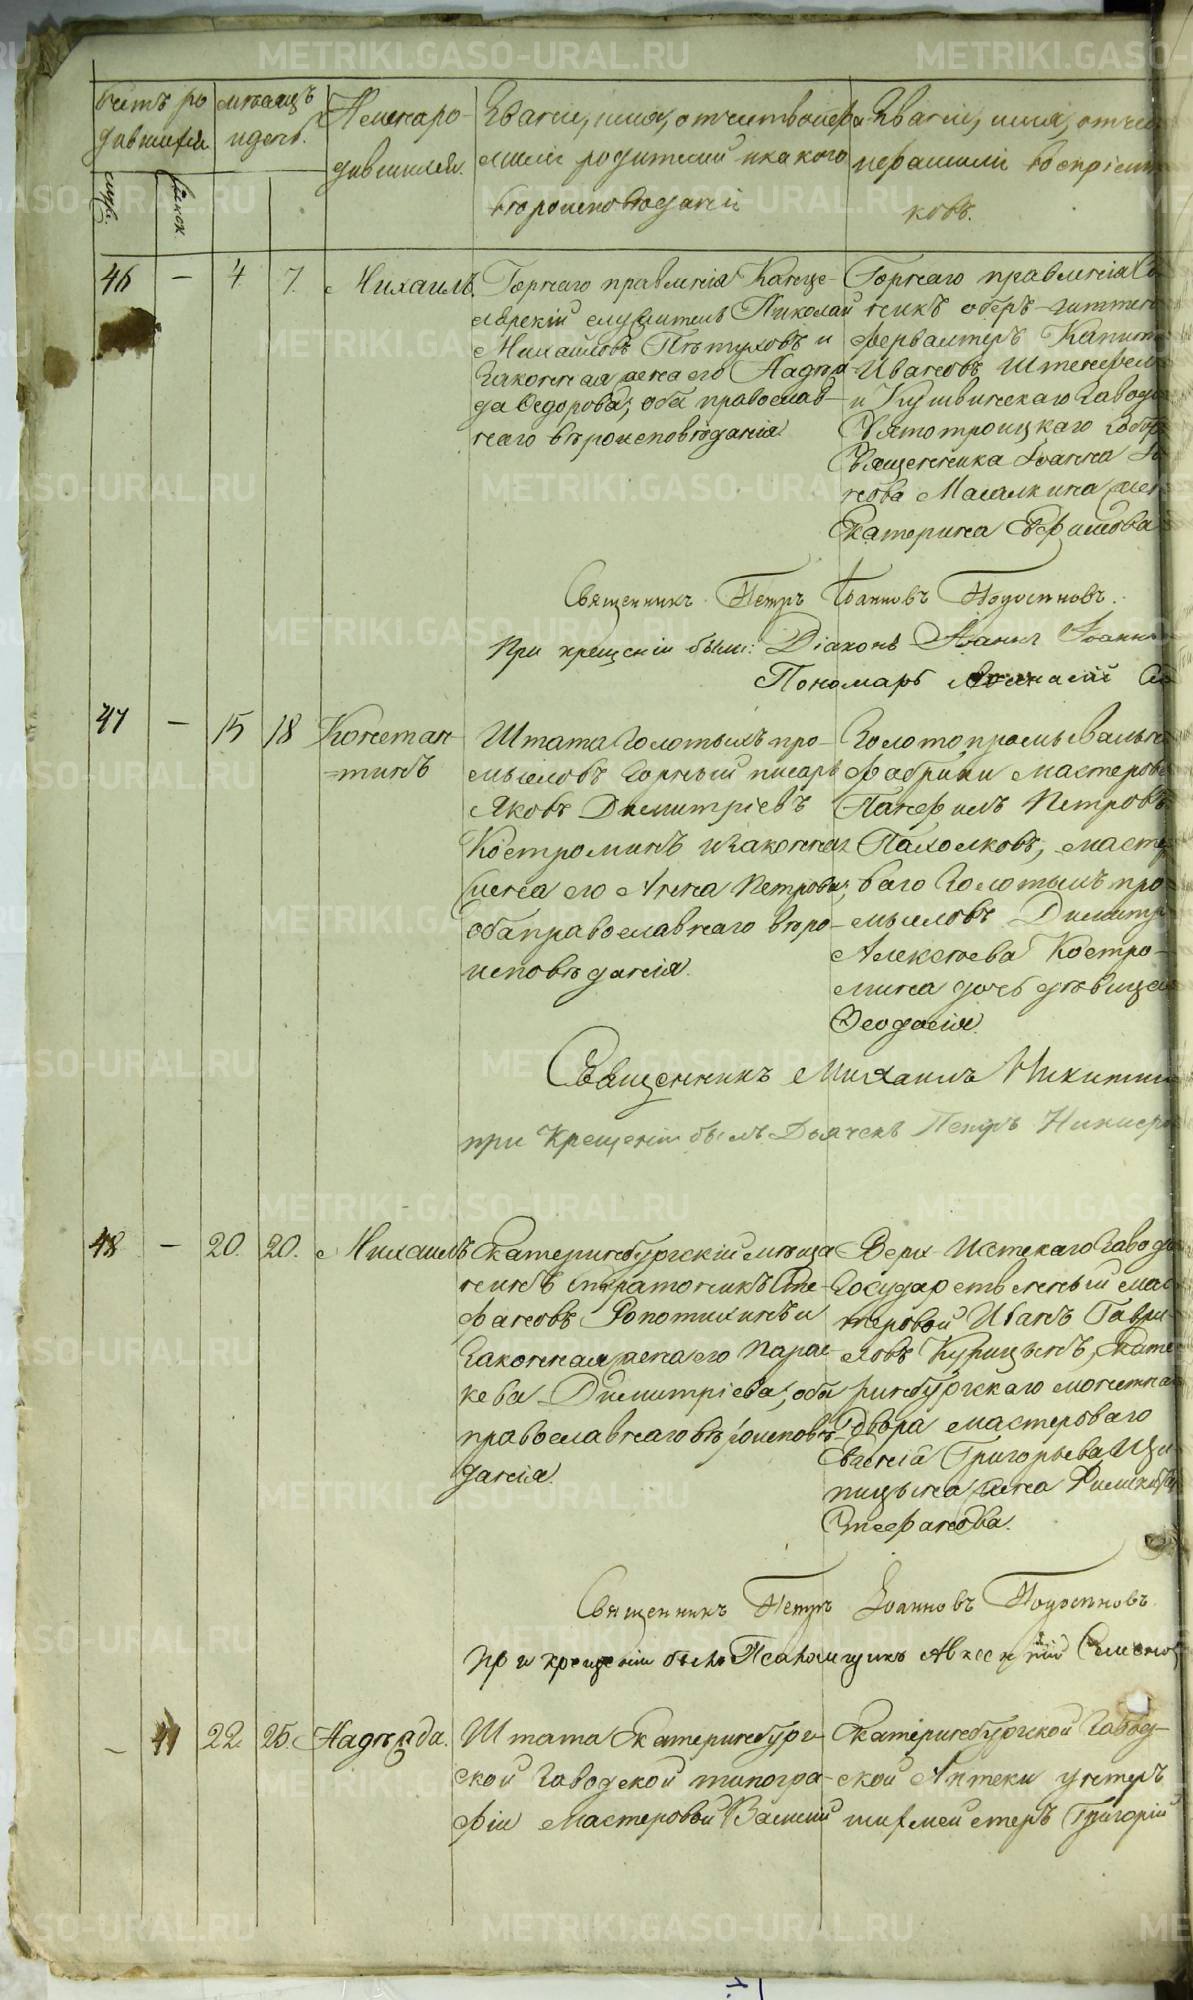 METRIKI.GASO-URAL.RU
Счетъ ро
дившихся
муж.
женск.
мѣсяцъ
и день.
Имена ро-
дившихся.
Званіе, имя, отчество и фа-
миліи родителей и какого
вѣроисповѣданія
Званіе, имя, отче
и фамиліи воспріем
ковъ.
46 — 4 7. Михаилъ.
Горнаго правленія Канце-
лярскій служитель Николай
Михайловъ Пѣтуховъ и
законная жена его Надеж-
да Ѳедорова, оба православ-
наго вѣроисповѣданія
Горнаго правленія
оберъ-гиттен
фервалтеръ Капит
Ивановъ Штенфел
и Кушвинскаго завода
Святотроицкаго Собор
Священника Іоанна
нова Малякина жен
Екатерина Ефимова
Священникъ Петръ Іоанновъ
При крещеніи были: Діаконъ
Пономарь
47 — 15 18 Констан-
=тинъ
Штата Золотыхъ про-
мысловъ Горный писарь
Яковъ Димитріевъ
Костроминъ и законная
жена его Анна Петрова,
оба православнаго вѣро-
исповѣданія.
Золотопромывальн
фабрики мастеров
Панфилъ Петровъ
Пахолковъ, масте
ваго Золотыхъ про-
мысловъ Димитр
Алексѣева Костро-
мина дочь дѣвица
Ѳеодосія.
Священникъ Михаилъ Никитин
при Крещеніи былъ Дьячекъ Петръ
48 — 20. 20. Михаилъ
Екатеринбургскій мѣща
нинъ Стратоникъ Сте-
фановъ Ропотихинъ и
законная жена его Парас-
кева Димитріева, оба
православнаго вѣроисповѣ-
данія.
Верх-Исетскаго завода
Государственный мас
теровой Иванъ Гаври-
ловъ Курицынъ, Екате
ринбургскаго монетна
двора мастероваго
Евгенія Григорьева Щи-
пицына жена
Стефанова.
Священникъ Петръ Іоанновъ
При крещеніи былъ Псаломщикъ Авксентій Семенов
— 41 22. 25. Надежда.
Штата Екатеринбург-
ской Заводской типогра-
фіи Мастеровой Василій
Екатеринбургской Завод-
ской Аптеки унтеръ
шихмейстеръ Григорій